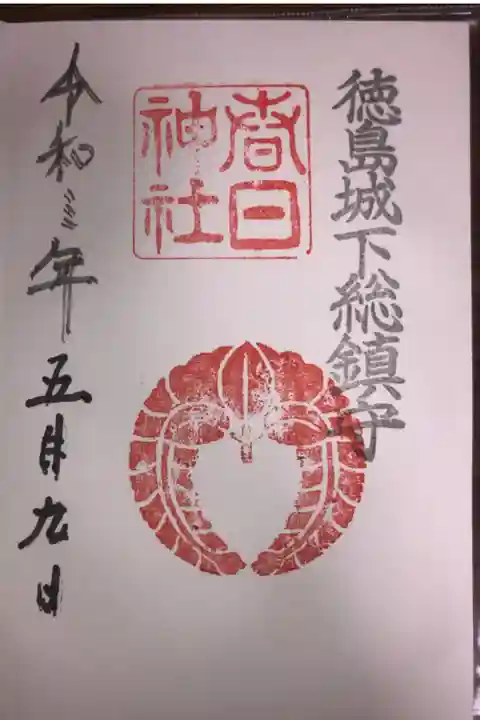 徳島城下総鎮守
春日
神社
令和三年五月九日